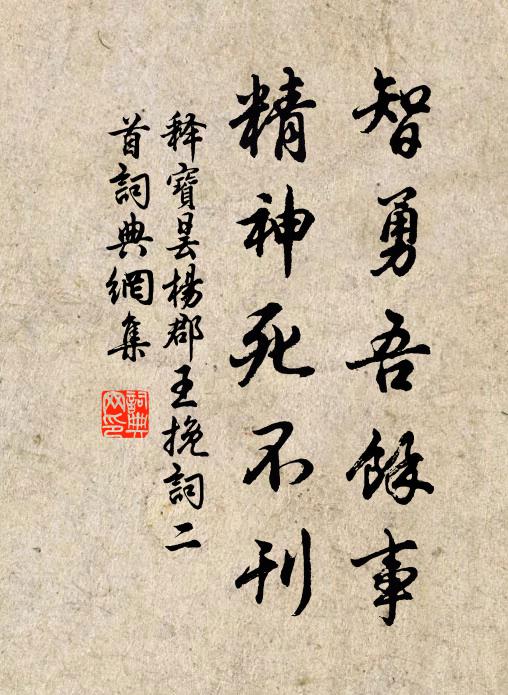 智勇吾餘事
精神死不刊
释寶曇楊郡王挽詞二
首詞典網集
詞典
网印